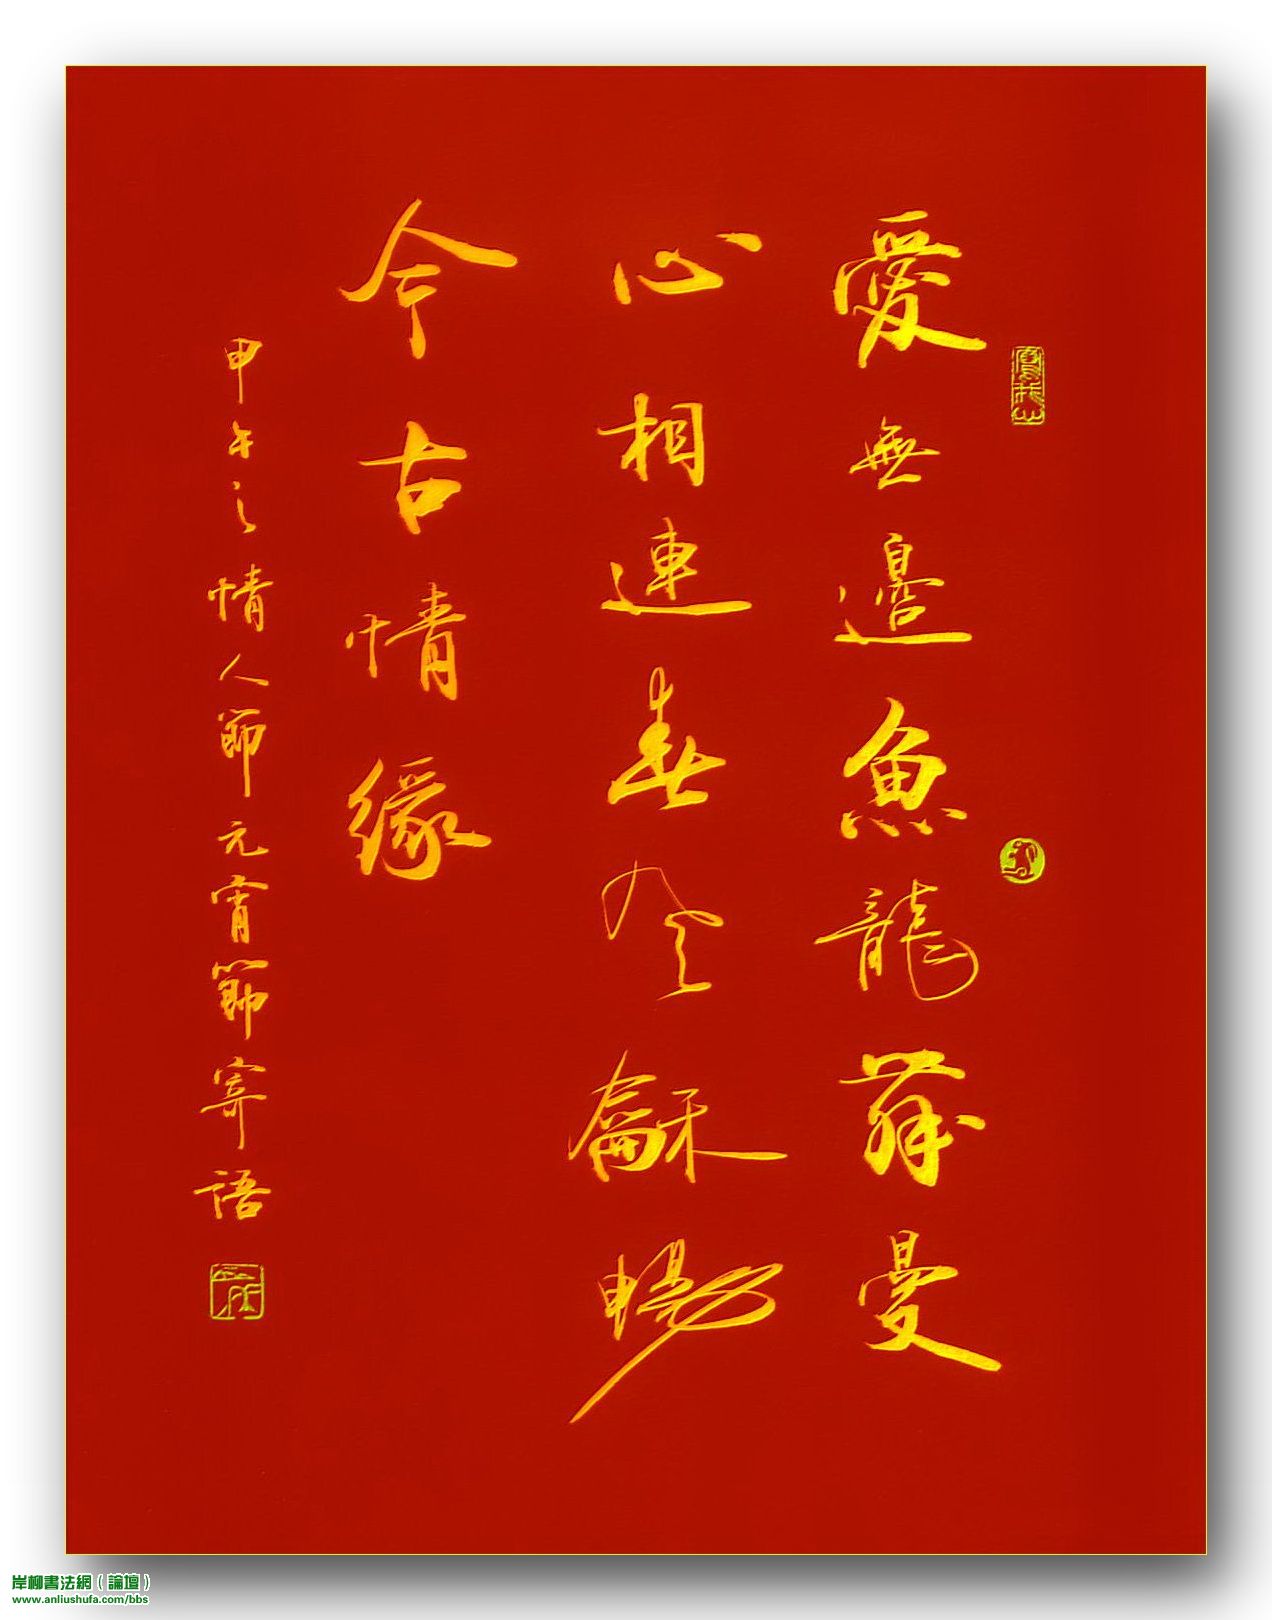 愛無邊魚龍舞曼
心相連春風龢暢
今古情緣
甲午之情人節元宵節寄語
岸柳書法網(論壇)
www.anliushufa.com/bbs